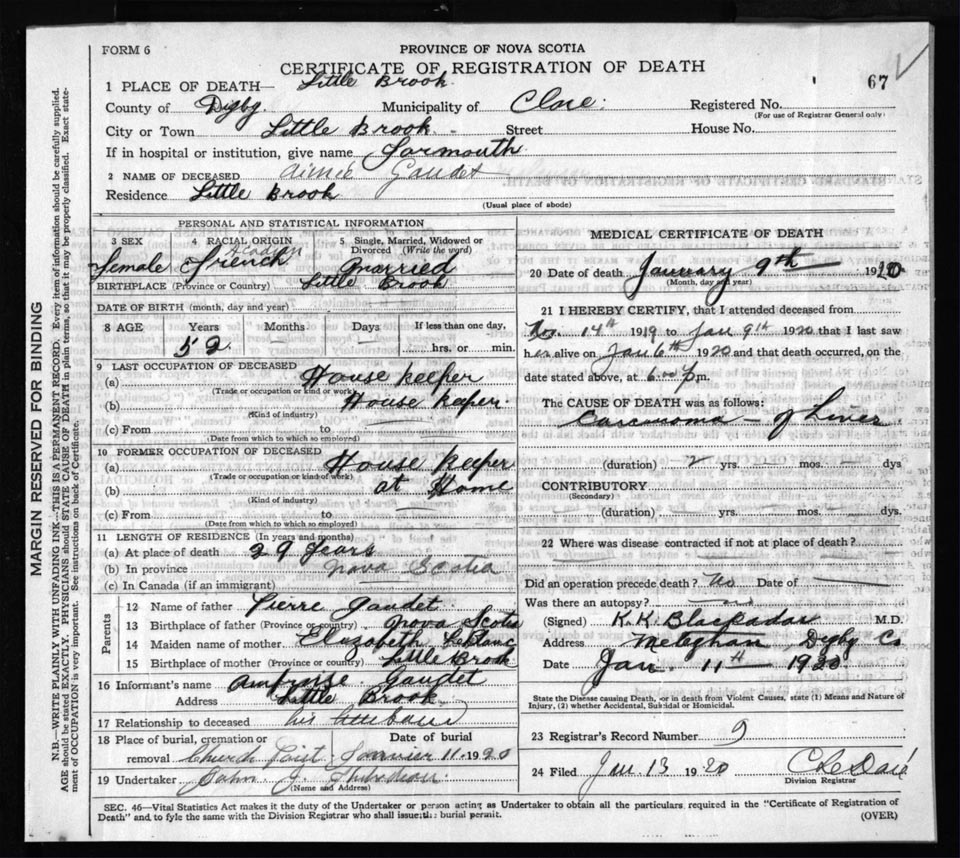 FORM 6
PROVINCE OF NOVA SCOTIA
CERTIFICATE OF REGISTRATION OF DEATH
67
1 PLACE OF DEATH— Little Brook
County of Digby Municipality of Clare Registered No.
(For use of Registrar General only)
City or Town Little Brook Street House No.
If in hospital or institution, give name Yarmouth
2 NAME OF DECEASED Aimée Gaudet
Residence Little Brook
(Usual place of abode)
PERSONAL AND STATISTICAL INFORMATION
3 SEX 4 RACIAL ORIGIN 5 Single, Married, Widowed or Divorced (Write the word)
Female Acadian French Married
BIRTHPLACE (Province or Country) Little Brook
DATE OF BIRTH (month, day and year)
8 AGE Years Months Days If less than one day,
52 — — hrs. or min.
9 LAST OCCUPATION OF DECEASED
(a) House Keeper
(Trade or occupation or kind of work)
(b) House Keeper
(Kind of industry)
(c) From to
(Date from which to which so employed)
10 FORMER OCCUPATION OF DECEASED
(a) House Keeper
(Trade or occupation or kind of work)
(b) at Home
(Kind of industry)
(c) From to
(Date from which to which so employed)
11 LENGTH OF RESIDENCE (In years and months)
(a) At place of death 29 Years
(b) In province Nova Scotia
(c) In Canada (if an immigrant)
Parents
12 Name of father Pierre Gaudet
13 Birthplace of father (Province or country) Nova Scotia
14 Maiden name of mother Elizabeth LeBlanc
15 Birthplace of mother (Province or country) Little Brook
16 Informant's name Ambroise Gaudet
Address Little Brook
17 Relationship to deceased his Husband
18 Place of burial, cremation or removal Church Point Date of burial Janvier 11 1920
19 Undertaker John J.
(Name and Address)
MEDICAL CERTIFICATE OF DEATH
20 Date of death January 9th 1920
(Month, day and year)
21 I HEREBY CERTIFY, that I attended deceased from
Nov. 14th 1919 to Jan 9th 1920 that I last saw
her alive on Jan 6th 1920 and that death occurred, on the
date stated above, at 6.00 p.m.
The CAUSE OF DEATH was as follows:
Carcinoma — of Liver
(duration) 2 yrs. — mos. — dys
CONTRIBUTORY
(Secondary)
(duration) yrs. mos. dys.
22 Where was disease contracted if not at place of death?
Did an operation precede death? No Date of
Was there an autopsy? no
(Signed) K. K. Blackadar M.D.
Address Meteghan, Digby Co
Date Jan. 11th 1920
State the Disease causing Death, or in death from Violent Causes, state (1) Means and Nature of
Injury, (2) whether Accidental, Suicidal or Homicidal.
23 Registrar's Record Number 9
24 Filed Jan 13 1920
Division Registrar
SEC. 46—Vital Statistics Act makes it the duty of the Undertaker or person acting as Undertaker to obtain all the particulars required in the "Certificate of Registration of
Death" and to fyle the same with the Division Registrar who shall issue the burial permit.
(OVER)
MARGIN RESERVED FOR BINDING
N.B.—WRITE PLAINLY WITH UNFADING INK—THIS IS A PERMANENT RECORD. Every item of information should be carefully supplied.
AGE should be stated EXACTLY. PHYSICIANS should STATE CAUSE OF DEATH in plain terms, so that it may be properly classified. Exact state-
ment of OCCUPATION is very important. See instructions on back of Certificate.